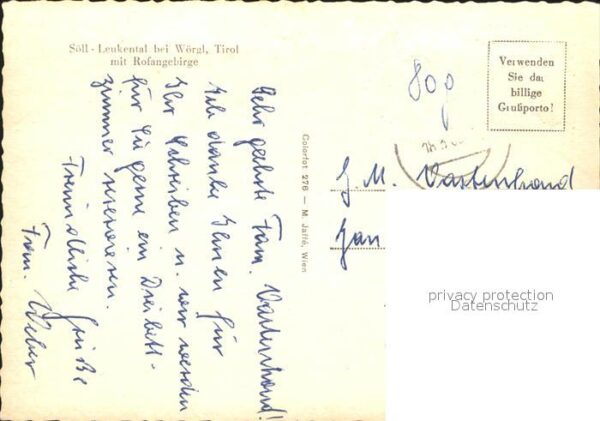 Söll - Leukental bei Wörgl, Tirol
mit Rofangebirge
Sehr geehrte Fam. Vastenhond!
danke Ihnen für
Ihr Schreiben u. wir werden
für Sie gerne ein Dreibett-
zimmer reservieren.
Freundliche Grüße
Fam. Weber
Colorfot 276 — M. Jaffé, Wien
80g
Verwenden
Sie das
billige
Grußporto!
G. M. Vastenhond
Jan
privacy protection
Datenschutz